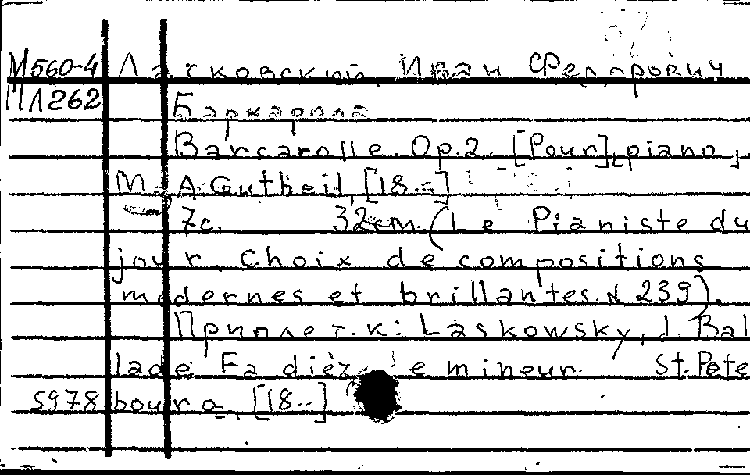 М560-4 Ласковский, Иван Федорович
МЛ262 Баркаролла
Barcarolle. Op.2. [Pour] piano.
M. A.Gutheil, [18--]
7c. 32cm. (Le Pianiste du
jour. Choix de compositions
modernes et brillantes. № 239).
Приплет. к: Laskowsky, J. Bal
lade Fa dièze mineur. St.Pete
5978 bourg, [18--]